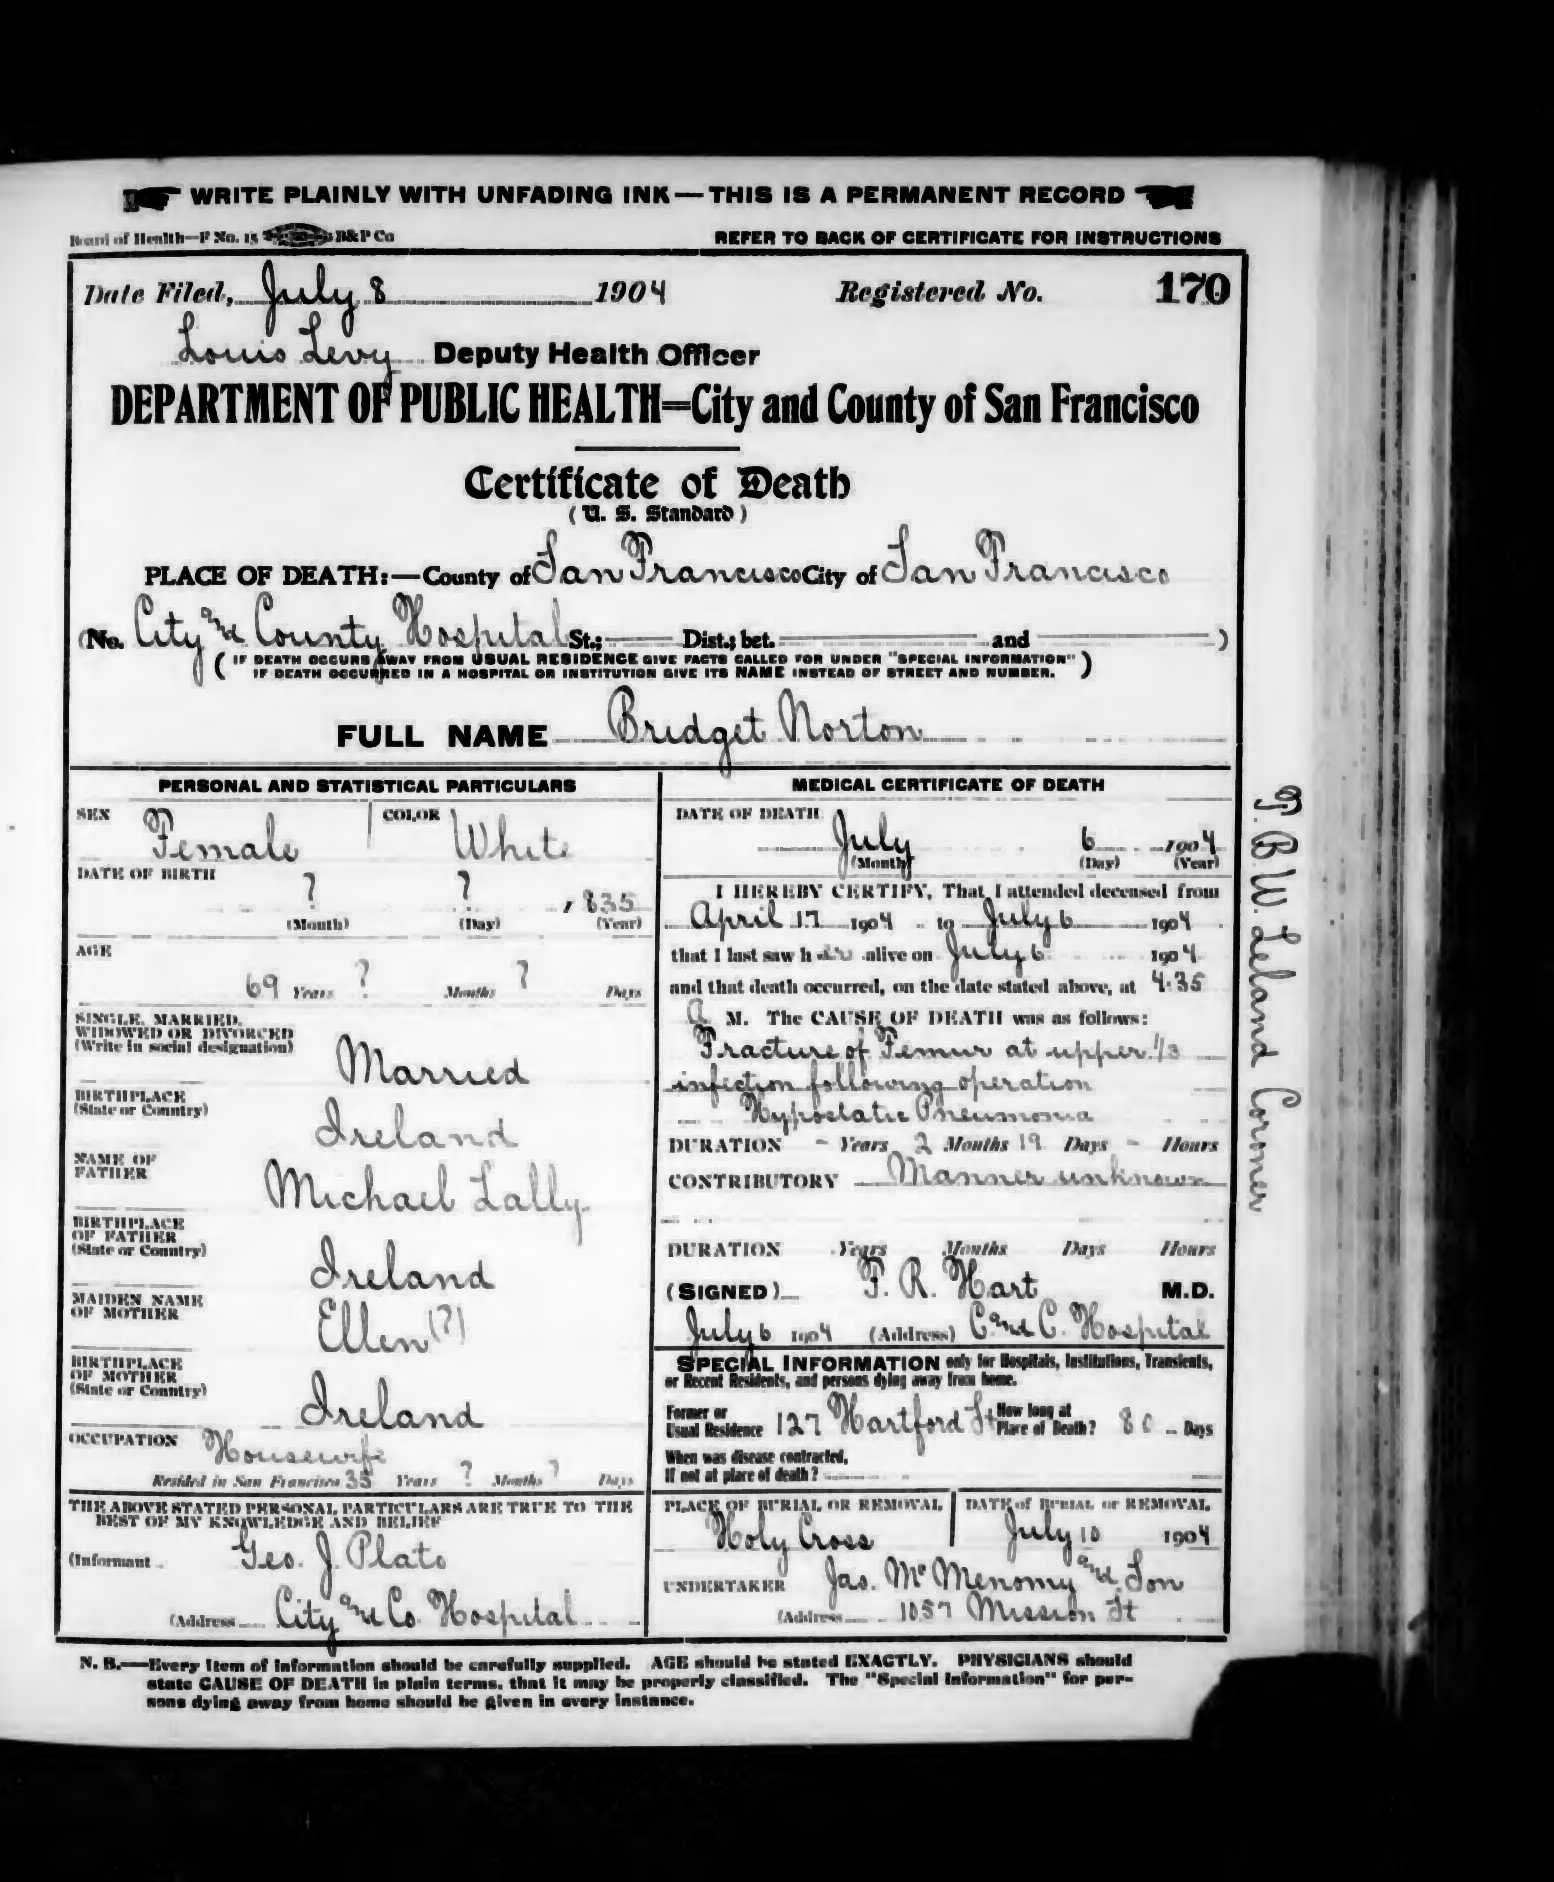 WRITE PLAINLY WITH UNFADING INK — THIS IS A PERMANENT RECORD
Board of Health—F No. 15 B&P Co
REFER TO BACK OF CERTIFICATE FOR INSTRUCTIONS
Date Filed, July 8 1904 Registered No. 170
Louis Levy Deputy Health Officer
DEPARTMENT OF PUBLIC HEALTH=City and County of San Francisco
Certificate of Death
(U. S. Standard)
PLACE OF DEATH:—County of San Francisco City of San Francisco
(No. City and County Hospital St.; Dist.; bet. and )
(IF DEATH OCCURS AWAY FROM USUAL RESIDENCE GIVE FACTS CALLED FOR UNDER "SPECIAL INFORMATION"
IF DEATH OCCURRED IN A HOSPITAL OR INSTITUTION GIVE ITS NAME INSTEAD OF STREET AND NUMBER.)
FULL NAME Bridget Norton
PERSONAL AND STATISTICAL PARTICULARS
SEX Female COLOR White
DATE OF BIRTH
? ? , 835
(Month) (Day) (Year)
AGE
69 Years ? Months ? Days
SINGLE, MARRIED,
WIDOWED OR DIVORCED
(Write in social designation)
Married
BIRTHPLACE
(State or Country)
Ireland
NAME OF
FATHER
Michael Lally
BIRTHPLACE
OF FATHER
(State or Country)
Ireland
MAIDEN NAME
OF MOTHER
Ellen (?)
BIRTHPLACE
OF MOTHER
(State or Country)
Ireland
OCCUPATION Housewife
Resided in San Francisco 35 Years ? Months ? Days
THE ABOVE STATED PERSONAL PARTICULARS ARE TRUE TO THE
BEST OF MY KNOWLEDGE AND BELIEF
(Informant Geo. J. Plato
(Address City and Co. Hospital
MEDICAL CERTIFICATE OF DEATH
DATE OF DEATH
July 6 1904
(Month) (Day) (Year)
I HEREBY CERTIFY, That I attended deceased from
April 17 1904 to July 6 1904
that I last saw her alive on July 6 1904
and that death occurred, on the date stated above, at 4.35
A M. The CAUSE OF DEATH was as follows:
Fracture of Femur at upper 1/3
infection following operation
Hypostatic Pneumonia
DURATION - Years 2 Months 19 Days - Hours
CONTRIBUTORY Manner unknown
DURATION Years Months Days Hours
(SIGNED) F. R. Hart M.D.
July 6 1904 (Address) C. and C. Hospital
SPECIAL INFORMATION only for Hospitals, Institutions, Transients,
or Recent Residents, and persons dying away from home.
Former or
Usual Residence 127 Hartford St How long at
Place of Death? 80 Days
When was disease contracted,
If not at place of death?
PLACE OF BURIAL OR REMOVAL DATE of BURIAL or REMOVAL
Holy Cross July 10 1904
UNDERTAKER Jas. McMenomy and Son
(Address 1057 Mission St
T. B. W. Leland Coroner
N. B.—Every item of information should be carefully supplied. AGE should be stated EXACTLY. PHYSICIANS should
state CAUSE OF DEATH in plain terms, that it may be properly classified. The "Special Information" for per-
sons dying away from home should be given in every instance.